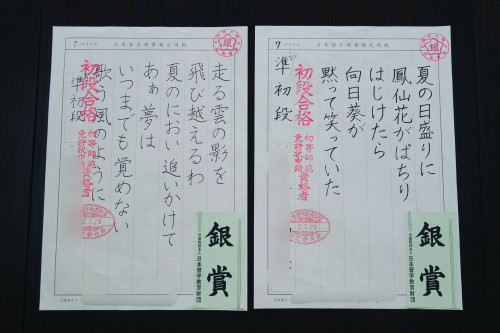 7
銀
夏の日盛りに
鳳仙花がぱちり
はじけたら
向日葵が
黙って笑っていた
準初段
初段合格
初等師範資格者
免許状申請
2.7.29
銀賞
公益財団法人
日本習字教育財団
7
銀
走る雲の影を
飛び越えるわ
夏のにおい 追いかけて
あぁ 夢は
いつまでも覚めない
歌う風のように
準初段
初段合格
初等師範資格者
免許状申請
2.7.29
銀賞
公益財団法人
日本習字教育財団